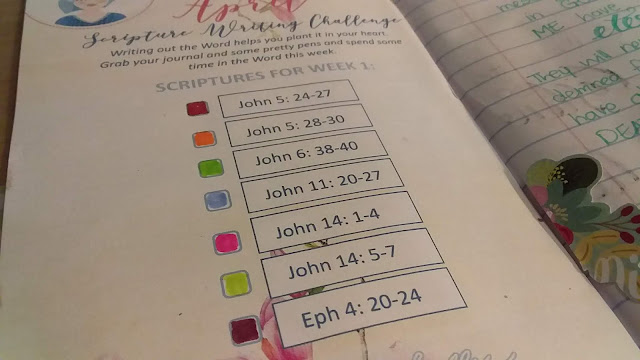 April
Scripture Writing Challenge
Writing out the Word helps you plant it in your heart.
Grab your journal and some pretty pens and spend some
time in the Word this week.
SCRIPTURES FOR WEEK 1:
John 5: 24-27
John 5: 28-30
John 6: 38-40
John 11: 20-27
John 14: 1-4
John 14: 5-7
Eph 4: 20-24
in
ME have
They will no
have
DEA